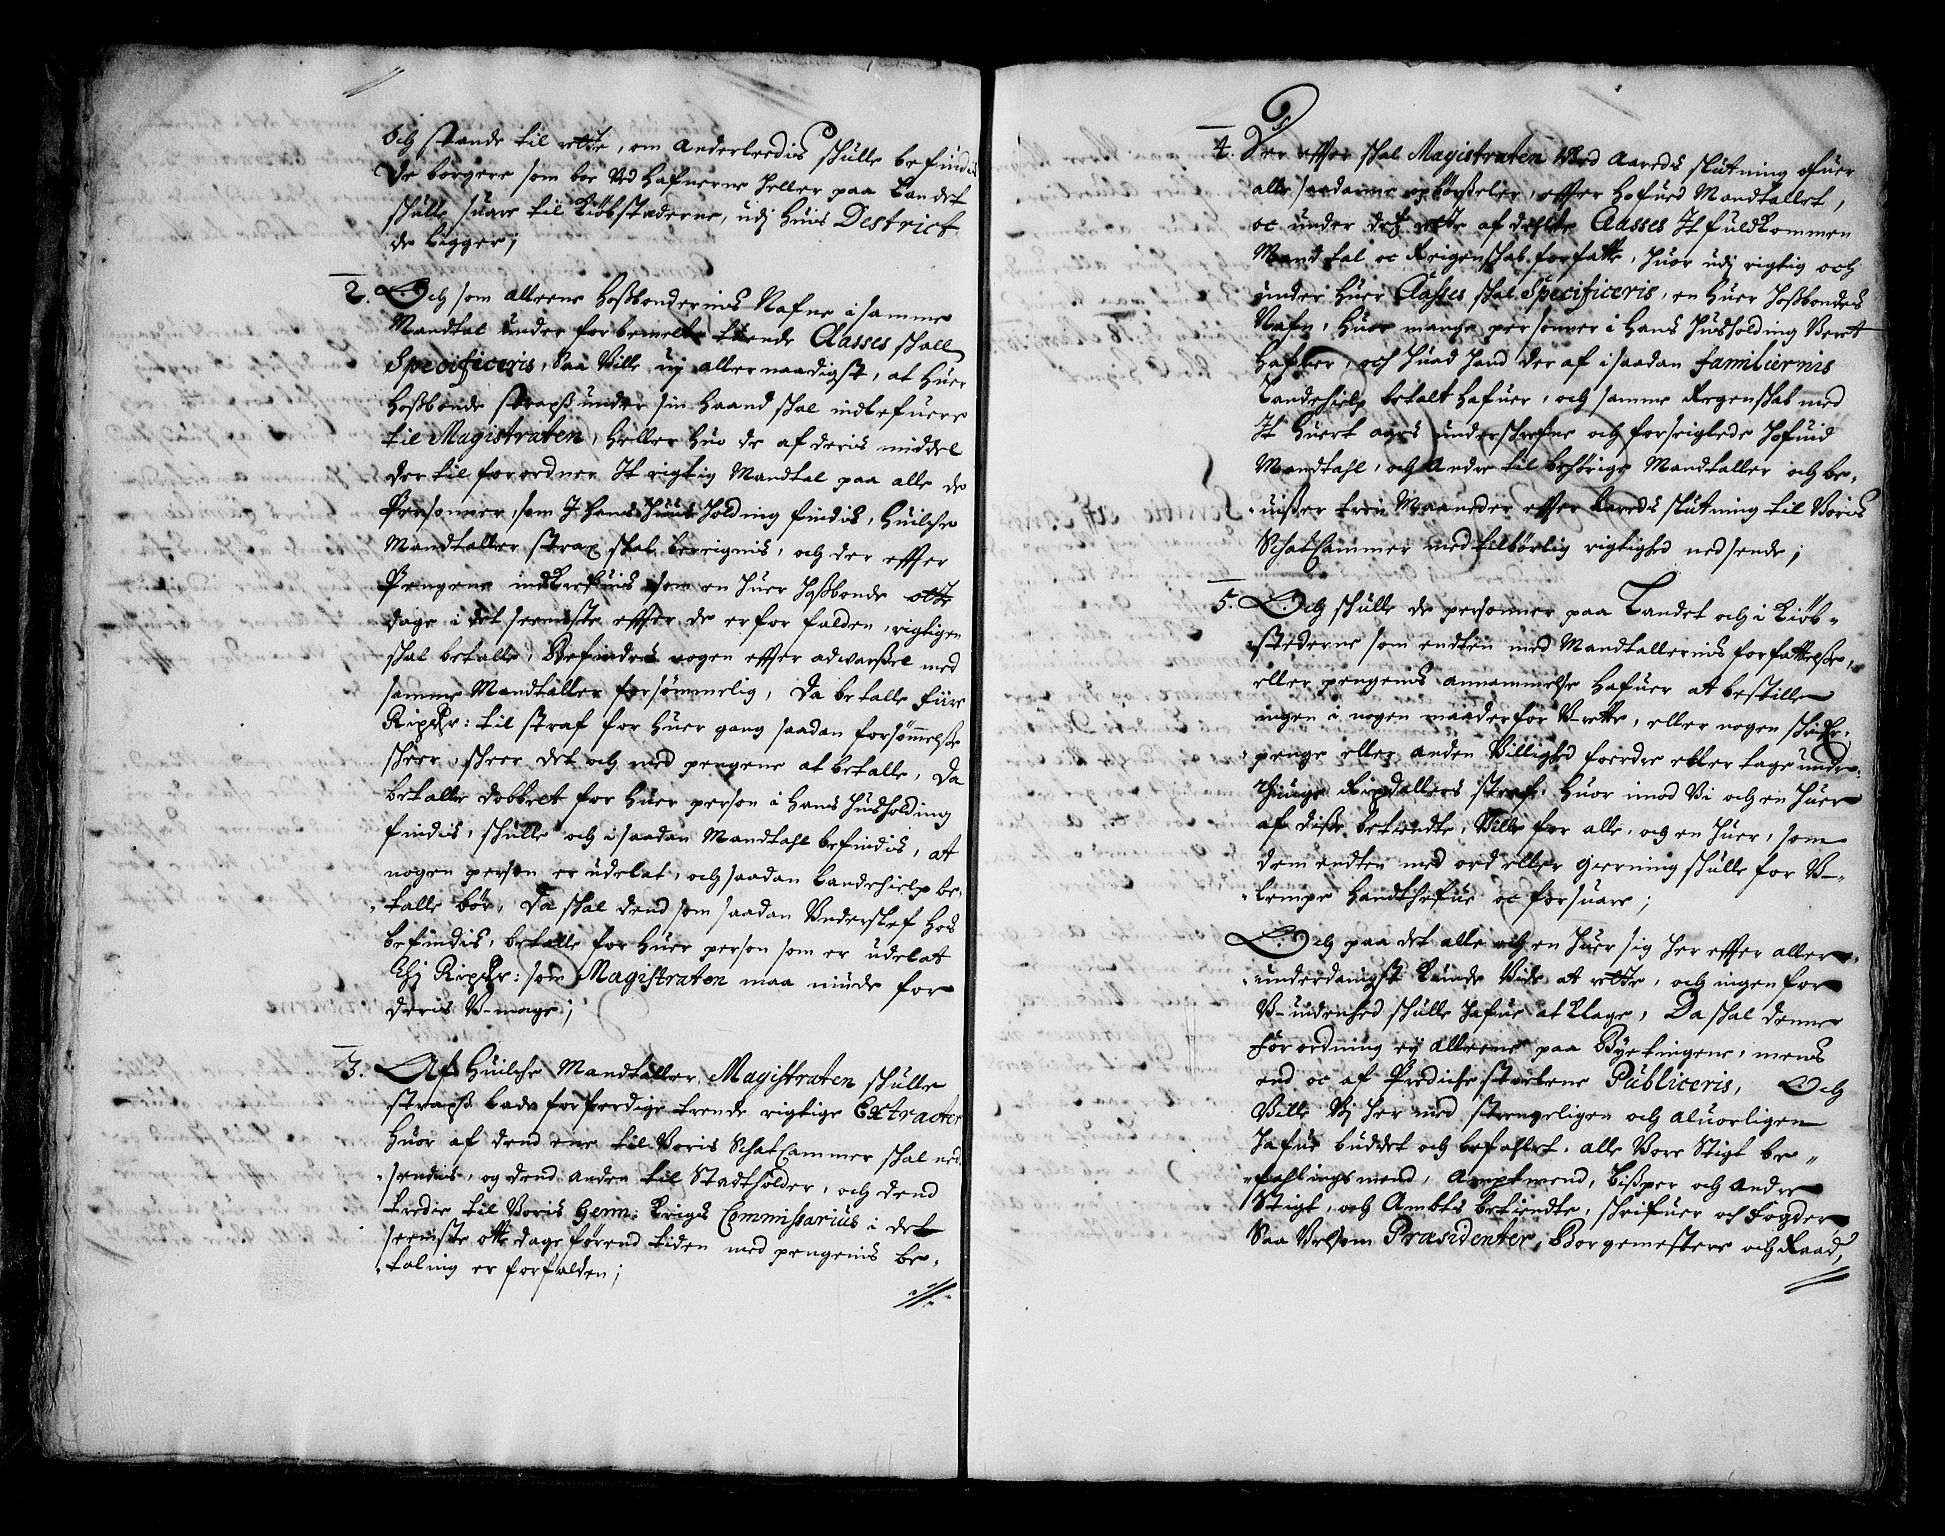 Och stande til rette, om anderleedis schulle befindis
De borgere som boe ved hafnerne heller paa Landet
schulle suare til Kiøbstæderne, udj huis District
de Ligger;
2. Och som alleene hoßbondernis Nafne i samme
Mandtal under forbemelte trende Classes schall
Specificeris, Saa Ville vij allernaadigst, at huer
hoßbonde strapß under sin haand schal indlefuere
til Magistraten, heller huo de af deris middel
der til forordner It rigtig Mandtal paa alle de
Personner, som J hans huus holding findis, huilche
Mandtaller strax skal bereignis, och der effter
Pengene indkrefuis som en huer hoßbonde otte
dage i det seeniste effter de er for falden, rigtigen
skal betalle, Befindes nogen effter advarßel med
samme Mandtaller forsømmelig, Da betalle fiire
Rixdr: til straf for huer gang saadan forsømmelße
scheer, scheer det och med pengene at betalle, Da
betalle dobbelt for huer person i hans husholding
findis, schulle och i saadan Mandtahl befindis, at
nogen person er udelat, och saadan Landehielp be-
talle bør, Da skal dend som saadan Underslef hos
befindis, betalle for huer person som er udelat
thj Rixdr: som Magistraten maa niude for
deris V-mage;
3. Af huilche Mandtaller, Magistraten schulle
strapß lade forferdige trende rigtige Extracter
huor af dend ene til Voris SchatCammer schal ned
sendis, og dend anden til Stadtholder, och dend
tredie til Voris Genn: Krigs Commissarius i det
seeniste otte dage førend tiden med pengenis be-
taling er forfalden;
4. Der effter schal Magistraten ved aareds slutning ofuer
alle saadanne opbørßeler, effter hofued Mandtallet,
oc under det rette af desse Classes It fuldkommen
Mandtal oc Reigenschab forfatte, huor udj rigtig och
under huer Classes skal Specificeris, en huer hoßbondes
Nafn, huor mange personner i hans husholding veret
hafuer, och huad hand der af i saadan familiernis
Landehielp betalt hafuer, och samme Regenskab med
It huert aars underschrefne och forseiglede hofuid
Mandtahl, och andre til behørige Mandtaller och be-
uißer trei Maaneder effter Aareds slutning til Voris
SchatCammer med tilbørlig rigtighed nedsende;
5. Och schulle de personner paa Landet och i Kiøb-
stederne som endten med Mandtallernis forfattelße,
eller pengenis annammelse hafuer at bestille
ingen i nogen maader for V-rette, eller nogen schrifr-
penge eller anden Villighed foerdre eller tage under
thiuge Rixdallers straf, huor imod Vi och en huer
af diße betiendte, Ville for alle, och en huer, som
dem endten med ord eller gierning schulle for V-
lempe handthefue oc forsuare;
Och paa det alle och en huer sig her effter aller-
underdanigst kunde vide at rette, och ingen for
V-uidenhed schulle hafue at klage, Da skal denne
forordning ej alleene paa Byetingene, mens
end oc af Prediche stoelene Publiceris, Och
Ville Vj her med strengeligen och aluorligen
hafue buddet och befallet, alle Vore Stigt be-
fahlingsmend, Amptmend, Bisper och andre
Stigt, och Ambts betiendte, schrifuer och fogder
Saa Velsom Præsidenter, Borgemestere och Raad,